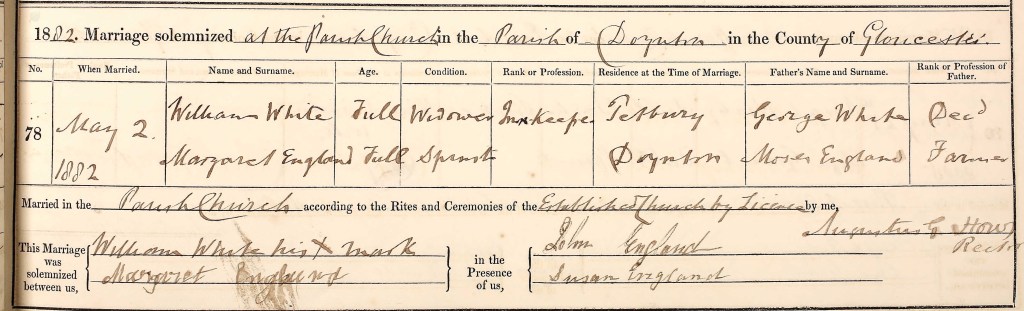 1882. Marriage solemnized at the Parish Church in the Parish of Doynton in the County of Gloucester.
No. When Married. Name and Surname. Age. Condition. Rank or Profession. Residence at the Time of Marriage. Father's Name and Surname. Rank or Profession of Father.
78 May 2. 1882
William White Full Widower Inn Keeper Tetbury George White Decd
Margaret England Full Spinst Doynton Moses England Farmer
Married in the Parish Church according to the Rites and Ceremonies of the Established Church by Licence by me,
Augustus G How
Rector
This Marriage was solemnized between us,
William White his X mark
Margaret England
in the Presence of us,
John England
Susan England